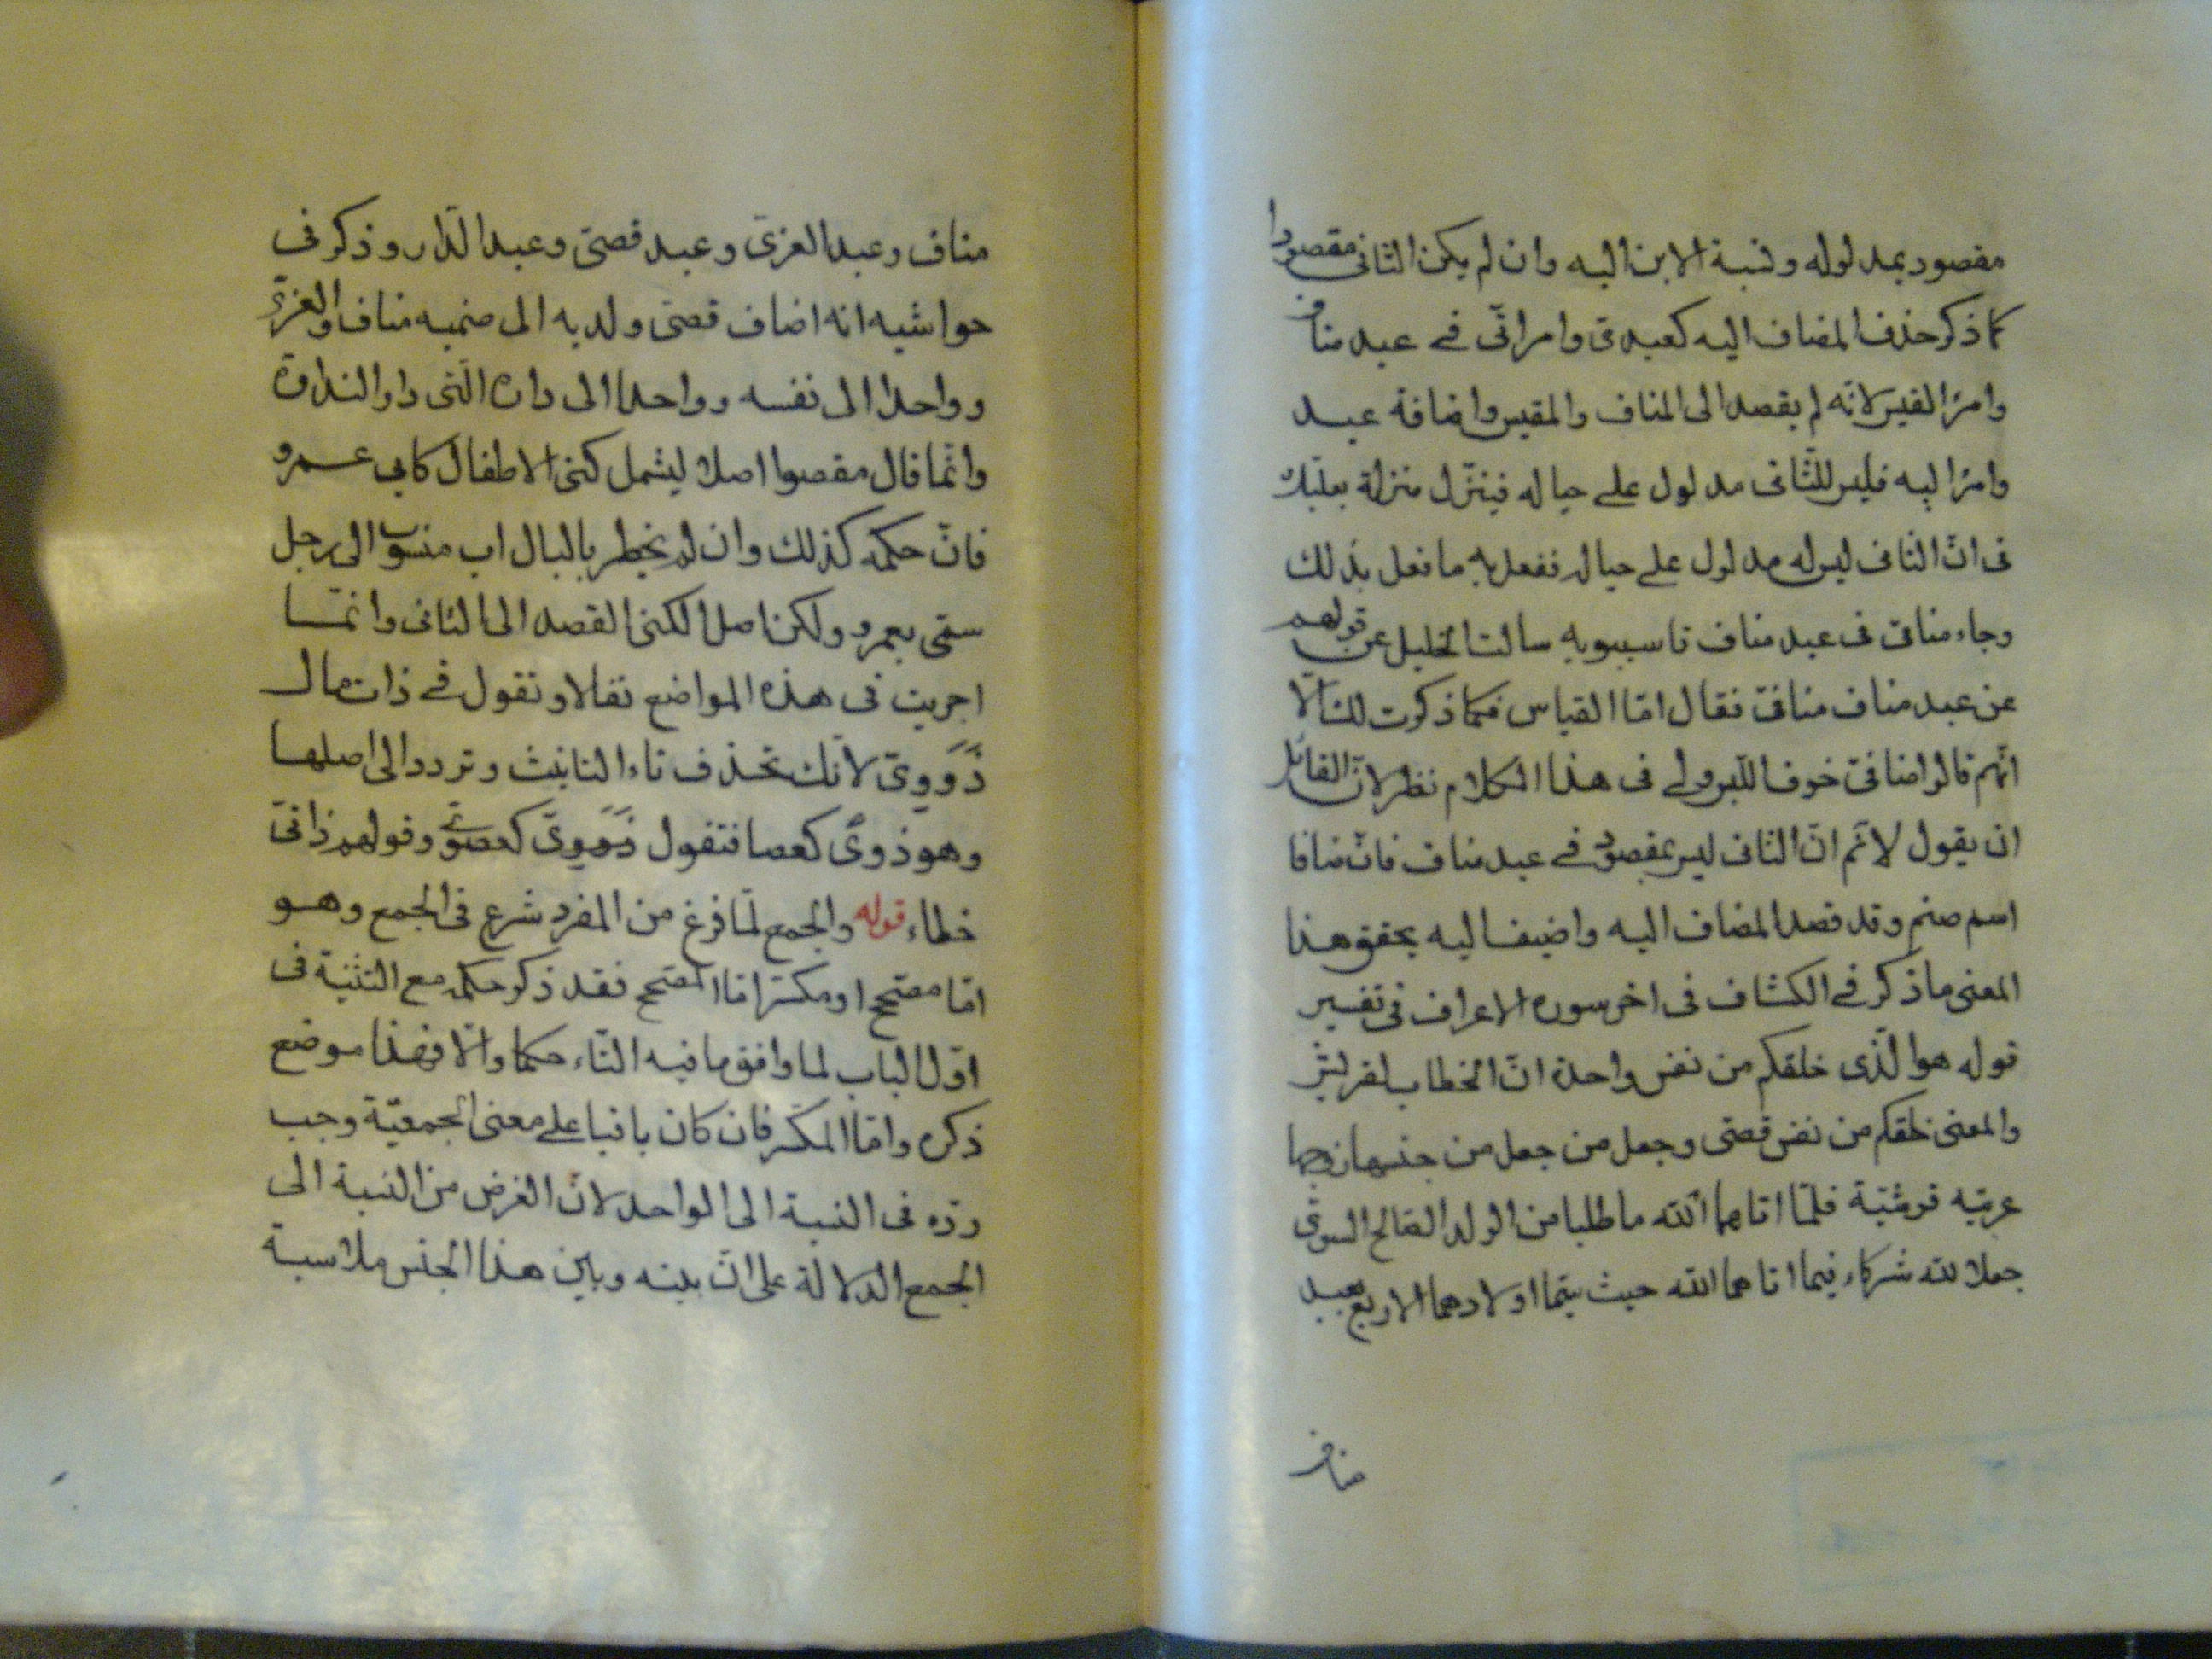 مقصود بمدلوله ونسبة الابن اليه وان لم يكن الثانى مقصودا
كما ذكر حذف المضاف اليه كعبدىّ وامرائّى فے عبد مناف
وامرأ القيس لانّه لم يقصد الى المناف والمقيس واضافة عبد
وامرأ اليه فليس للثّانى مدلول على حياله فينزّل منزلة بعلبك
فى انّ الثانى ليس له مدلول على حياله ففعل به ما فعل بذلك
وجاء منافىّ فى عبد مناف قا سيبويه سالت الخليل عن قولهم
عن عبد مناف منافىّ فقال امّا القياس فكما ذكرت لك الّا
انّهم قالوا منافىّ خوف اللبس ولے فى هذا الكلام نظر لانّ القائل
ان يقول لانّم انّ الثانى ليس بمقصود فے عبد مناف فانّ منافا
اسم صنم وقد قصد المضاف اليه واضيف اليه يحقق هذا
المعنى ما ذكر فے الكشّاف فى اخر سوره الاعراف فى تفسير
قوله هو الّذى خلقكم من نفس واحدة انّ الخطاب لقريش
والمعنى خلقكم من نفس قصىّ وجعل من جعل من جنسها زوجها
عربيّه قرشيّة فلمّا اتاهما الله ما طلبا من الولد الصّالح السوىّ
جعلا لله شركاء فيما اتاهما الله حيث سمّيا اولادهما الاربع بعبد
مناف
مناف وعبد العزى وعبد قصىّ وعبد الدّار وذكر فى
حواشيه انه اضاف قصىّ ولديه الى صنميه مناف والعزىّ
وواحدا الى نفسه وواحدا الى داره الّتى دار الندوة
وانّما قال مقصوا اصلا ليشمل كنى الاطفال كابى عمرو
فانّ حكمه كذلك وان لم يخطر بالبال اب منسوب الى رجل
سمّى بعمرو ولكن اصل الكنى القصد الى الثانى وانّما
اجريت فى هذه المواضع تفالا وتقول فے ذات مال
ذَوَوِىّ لانّك تحذف تاء التانيث وتردد الى اصلها
وهو ذوىً كعصا فتقول ذَوَوِىّ كعصوىّ وقولهم ذاتىّ
خطاء قوله والجمع لمّا فرغ من المفرد شرع فى الجمع وهو
امّا مصحّح او مكسّر امّا المصحّح فقد ذكر حكمه مع التثنية فى
اوّل الباب لما وافق ما فيه التّاء حكما والّا فهذا موضع
ذكره وامّا المكسّر فان كان باقيا على معنى الجمعيّة وجب
ردّه فى النسبة الى الواحد لانّ الغرض من النسبة الى
الجمع الدلالة على انّ بينه وبين هذا الجنس ملابسة